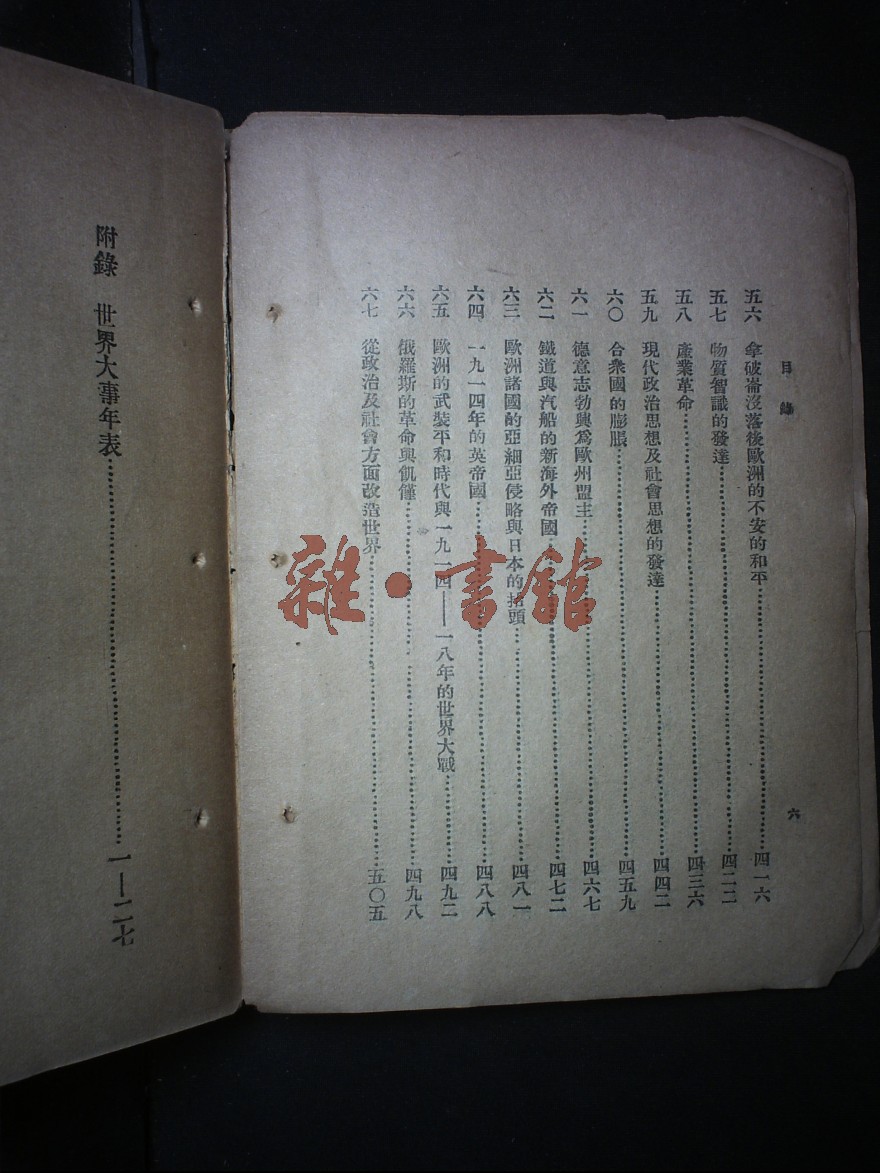 目錄
五六　拿破崙沒落後歐洲的不安的和平……四一六
五七　物質智識的發達……四二二
五八　產業革命……四三六
五九　現代政治思想及社會思想的發達……四四二
六〇　合衆國的膨脹……四五九
六一　德意志勃興爲歐州盟主……四六七
六二　鐵道與汽船的新海外帝國……四七二
六三　歐洲諸國的亞細亞侵略與日本的抬頭……四八一
六四　一九一四年的英帝國……四八八
六五　歐洲的武裝平和時代與一九一四——一八年的世界大戰……四九二
六六　俄羅斯的革命與飢饉……四九八
六七　從政治及社會方面改造世界……五〇五
六
附錄　世界大事年表……一—二七
雜·書館